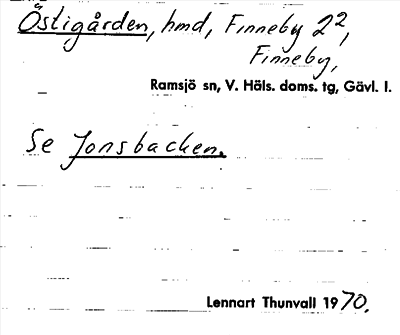 Östigården, hmd, Finneby 2²,
Finneby,
Ramsjö sn, V. Häls. doms. tg, Gävl. l.
Se Jonsbacken.
Lennart Thunvall 1970.